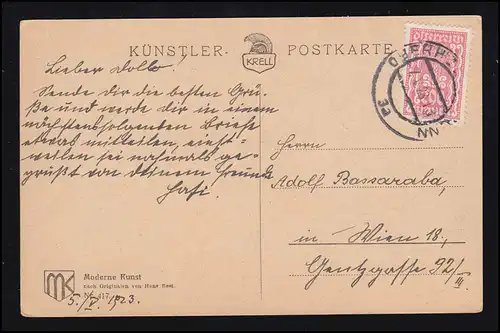 KÜNSTLER-
KRELL
POSTKARTE
Lieber Dollo!
Sende dir die besten Grü-
ße und werde dir in einem
nächstfolgenden Briefe
etwas mitteilen, einst-
weilen sei nochmals ge-
grüßt von deinem Freunde
Herrn
Adolf Bassaraba,
in Wien 18,
Gentzgasse 92/III.
Moderne Kunst
nach Originalen von Hans
Nr. 417
5./V. 1923.
MK